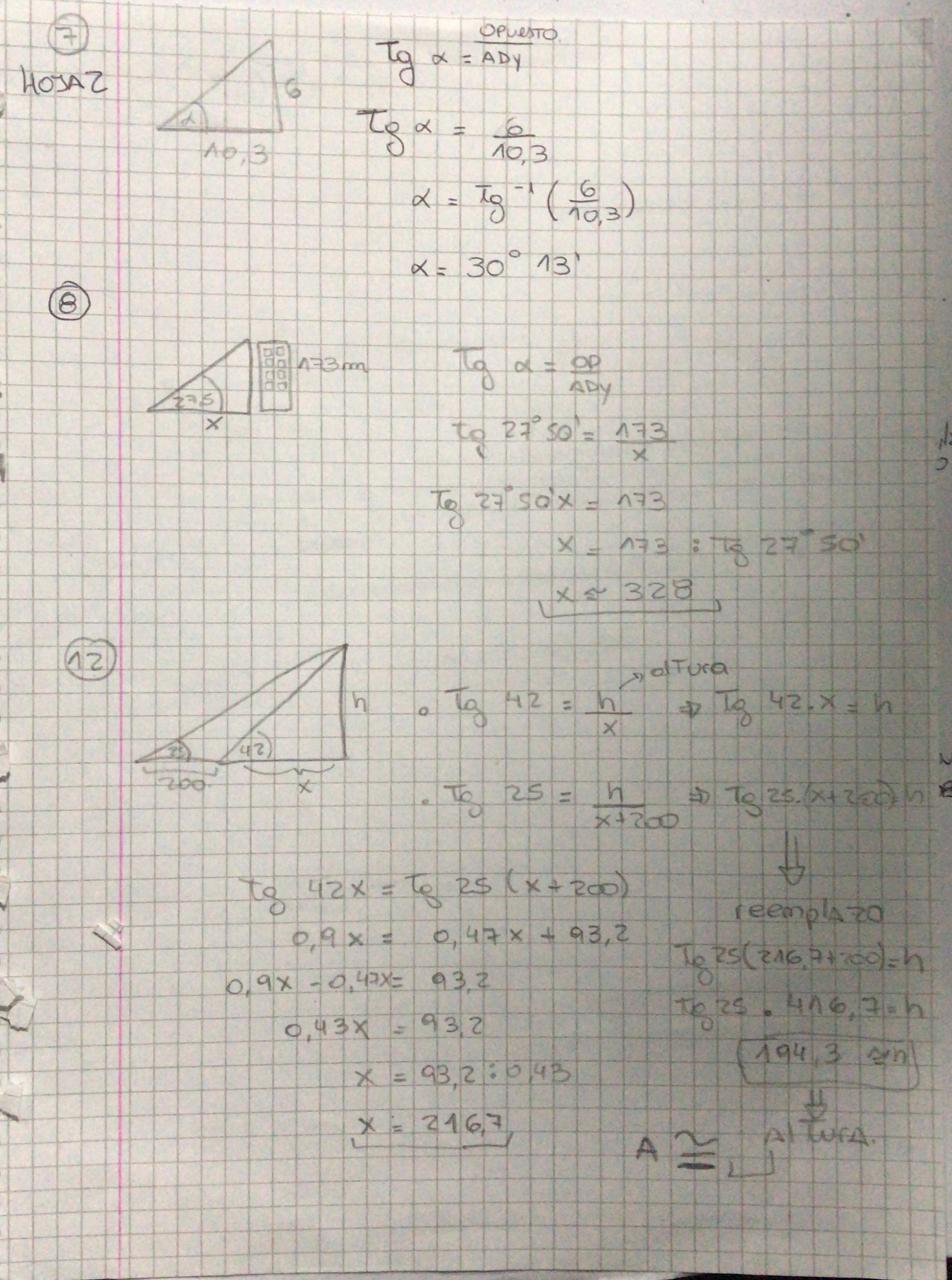 7
HOJA 2
α
6
10,3
Tg α = OPUESTO / ADY
Tg α = 6 / 10,3
α = Tg⁻¹ (6 / 10,3)
α = 30° 13'
8
173m
275
x
Tg α = OP / ADY
Tg 27° 50' = 173 / x
Tg 27° 50' x = 173
x = 173 : Tg 27° 50'
x ≈ 328
12
25
42
h
200
x
• Tg 42 = h / x ⇒ Tg 42 . x = h
altura
• Tg 25 = h / x+200 ⇒ Tg 25.(x+200) = h
Tg 42x = Tg 25 (x+200)
0,9x = 0,47x + 93,2
0,9x - 0,47x = 93,2
0,43x = 93,2
x = 93,2 : 0,43
x = 216,7
reemplazo
Tg 25(216,7+200) = h
Tg 25 . 416,7 = h
194,3 ≅ h
Altura.
A ≅